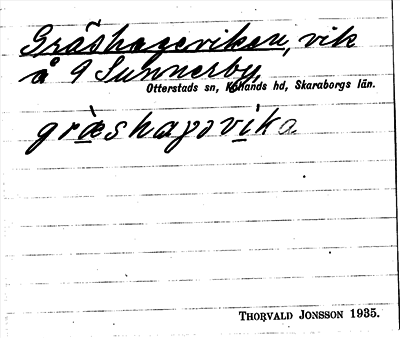 Gräshageviken, vik
å 9 Sunnerby,
Otterstads sn, Kållands hd, Skaraborgs län.
THORVALD JONSSON 1935.